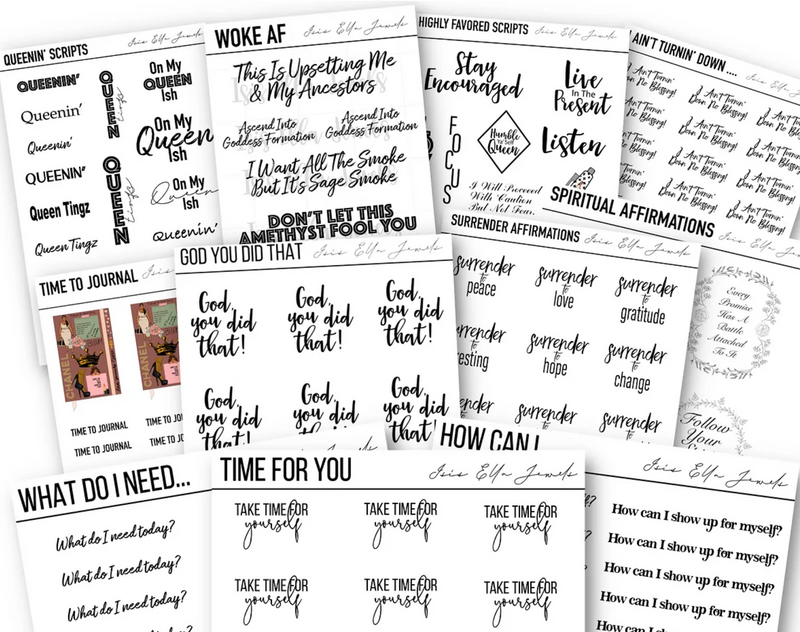 QUEENIN' SCRIPTS
Isis Ella Jewels
QUEENIN'
Queenin'
Queenin'
QUEENIN'
Queen Tingz
Queen Tingz
QUEEN
QUEEN
On My
QUEEN
Ish
On My
Queen
Ish
On My
Queen
Ish
queenin'
WOKE AF
Isis Ella Jewels
This Is Upsetting Me
& My Ancestors
Ascend Into
Goddess Formation
Ascend Into
Goddess Formation
I Want All The Smoke
But It's Sage Smoke
DON'T LET THIS
AMETHYST FOOL YOU
HIGHLY FAVORED SCRIPTS
Isis Ella Jewels
Stay
Encouraged
Live
In The
Present
FOCUS
Humble
Queen
Listen
I Will Proceed
With Caution
But Not Fear.
AIN'T TURNIN' DOWN ....
I Ain't Turnin'
Down No Blessing!
I Ain't Turnin'
Down No Blessing!
I Ain't Turnin'
Down No Blessing!
I Ain't Turnin'
Down No Blessing!
I Ain't Turnin'
Down No Blessing!
I Ain't Turnin'
Down No Blessing!
SPIRITUAL AFFIRMATIONS
Every
Promise
Has A
Battle
Attached
To It
Follow
Your
TIME TO JOURNAL
Isis
CHANEL
CHANEL
TIME TO JOURNAL
TIME TO JOU
TIME TO JOURNAL
TIME TO JOU
GOD YOU DID THAT
Isis Ella Jewels
God,
you did
that!
God,
you did
that!
God,
you did
that!
God,
you did
that!
God,
you did
that!
God,
you did
that!
SURRENDER AFFIRMATIONS
Isis Ella Jewels
surrender
to
peace
surrender
to
love
surrender
to
gratitude
surrender
to
resting
surrender
to
hope
surrender
to
change
surrender
surrender
surrender
WHAT DO I NEED...
What do I need today?
What do I need today?
What do I need today?
TIME FOR YOU
Isis Ella Jewels
TAKE TIME FOR
yourself
TAKE TIME FOR
yourself
TAKE TIME FOR
yourself
TAKE TIME FOR
yourself
TAKE TIME FOR
yourself
TAKE TIME FOR
yourself
HOW CAN I
Isis Ella Jewels
How can I show up for myself?
How can I show up for myself?
How can I show up for myself?
How can I show up for myself?
How can I show up for myself?